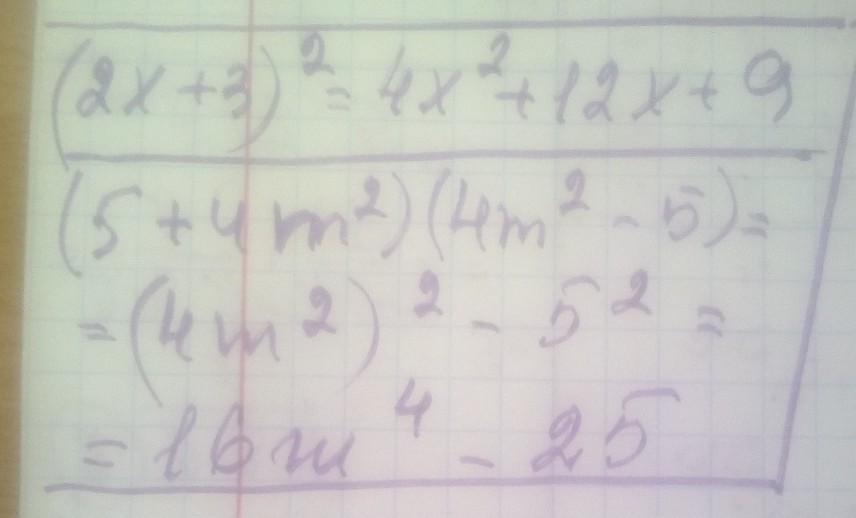 (2x+3)² = 4x² + 12x + 9
(5 + 4m²)(4m² - 5) =
= (4m²)² - 5² =
= 16m⁴ - 25